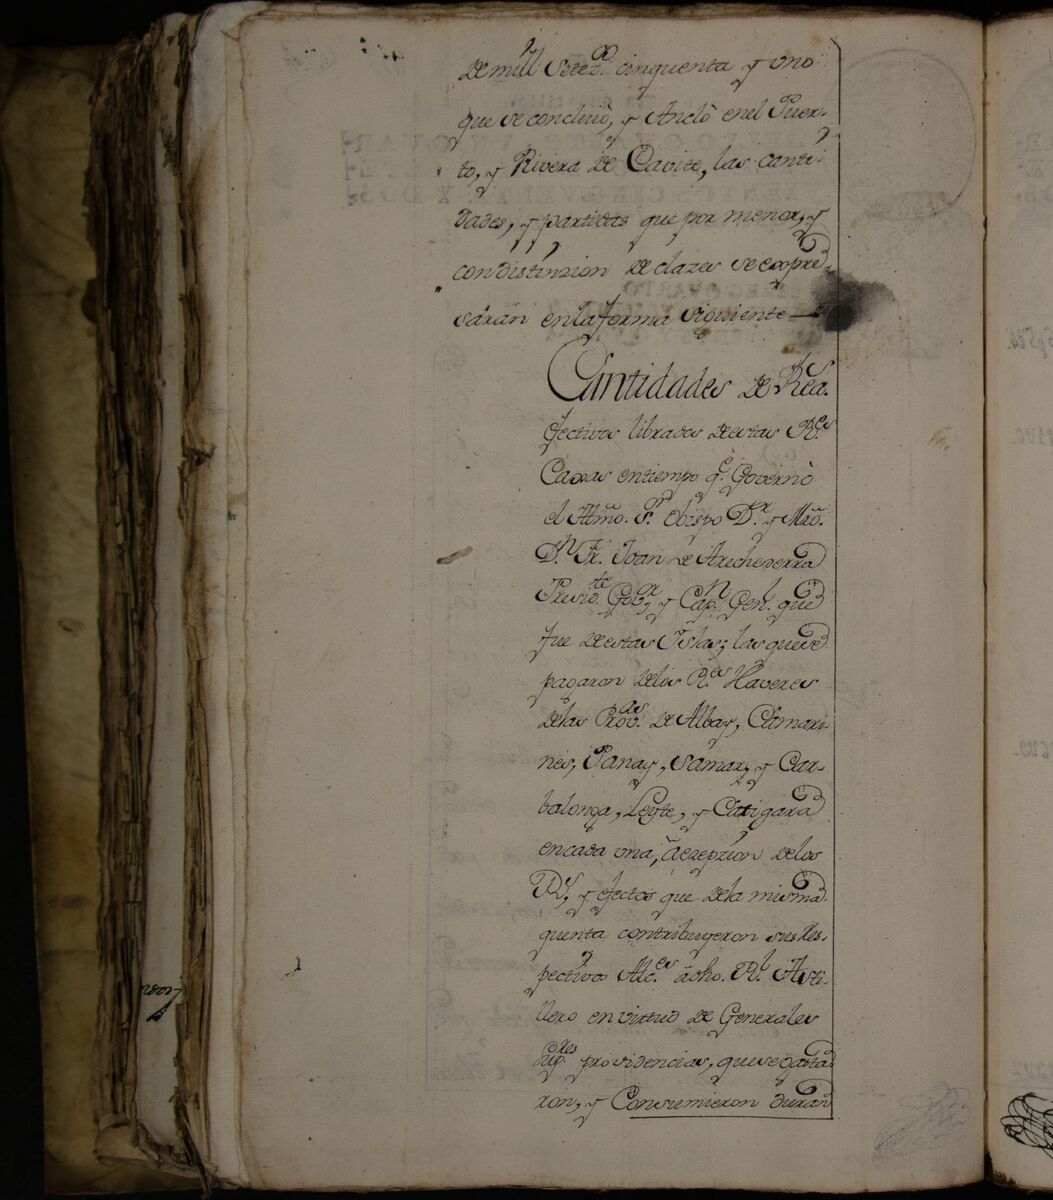 de mill Setez.os cinquenta y uno
que se concluio, y Ancló en el Puer-
to, y Rivera de Cavite, las canti-
dades, y partidas que por menor, y
con distinzion de clazes se expre-
sarán en la forma siguiente
Cantidades de Rea.s
efectivos librados de estas R.es
Caxas en tiempo q.e Governó
el Illmo. S.or Obispo D.r y Mrô.
D.n Fr. Joan de Arechederra
Presid.te Gov.or y Cap.n Gen.l que
fue de estas Yslas; las que se
pagaron de los R.es Haveres
de las Prov.as de Albay, Camari-
nes, Panay, Samar, y Cat-
balonga, Leyte, y Catigara
en cada una, á excepzion de los
y efectos que de la misma
quenta contribuyeron sus Res-
pectivos Alc.es á dho. R.l Asti-
llero en virtud de Generales
Sup.res providencias, que se gasta-
ron, y Consumieron duran